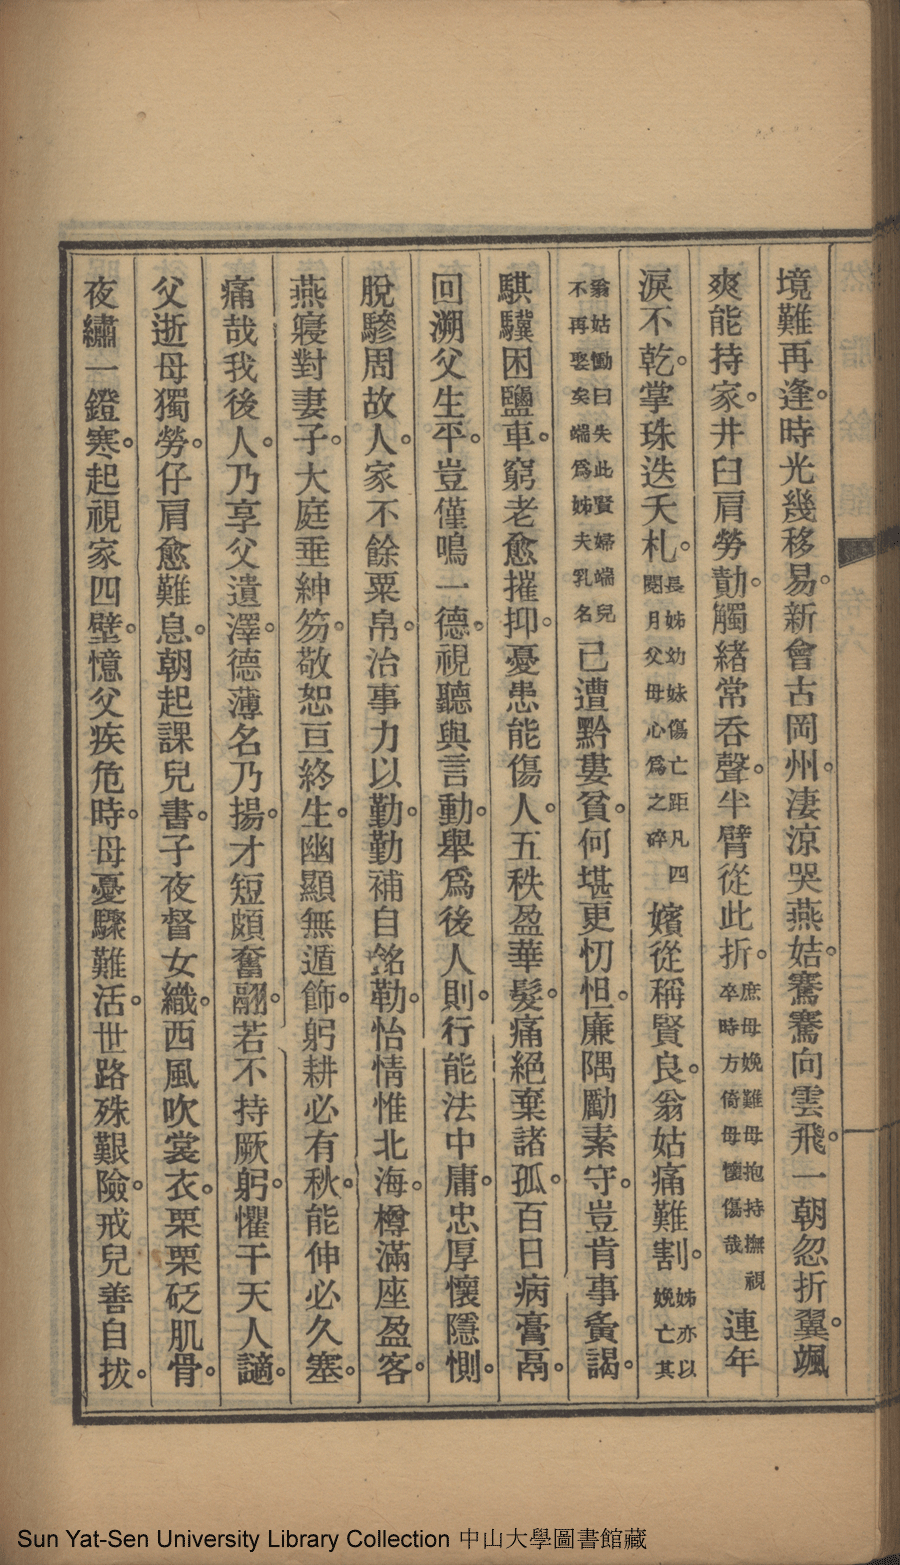 境難再逢。時光幾移易。新會古岡州。淒涼哭燕姞。騫騫向雲飛。一朝忽折翼。颯
爽能持家。井臼肩勞勩。觸緒常吞聲。半臂從此折。庶母娩難母抱持撫視卒時方倚母懷傷哉連年
淚不乾。掌珠迭夭札。長姊幼妹傷亡距凡四閱月父母心爲之碎嬪從稱賢良。翁姑痛難割。姊亦以娩亡其
翁姑慟曰失此賢婦端兒不再娶矣端爲姊夫乳名已遭黔婁貧。何堪更忉怛。廉隅勵素守。豈肯事夤謁。
騏驥困鹽車。窮老愈摧抑。憂患能傷人。五秩盈華髮。痛絕棄諸孤。百日病膏鬲。
回溯父生平。豈僅鳴一德。視聽與言動。舉爲後人則。行能法中庸。忠厚懷隱惻。
脫驂周故人。家不餘粟帛。治事力以勤。勤補自銘勒。怡情惟北海。樽滿座盈客。
燕寢對妻子。大庭垂紳笏。敬恕亘終生。幽顯無遁飾。躬耕必有秋。能伸必久塞。
痛哉我後人。乃享父遺澤。德薄名乃揚。才短頗奮翮。若不持厥躬。懼干天人謫。
父逝母獨勞。仔肩愈難息。朝起課兒書。子夜督女織。西風吹裳衣。栗栗砭肌骨。
夜繡一鐙寒。起視家四壁。憶父疾危時。母憂驟難活。世路殊艱險。戒兒善自拔。
Sun Yat-Sen University Library Collection 中山大學圖書館藏